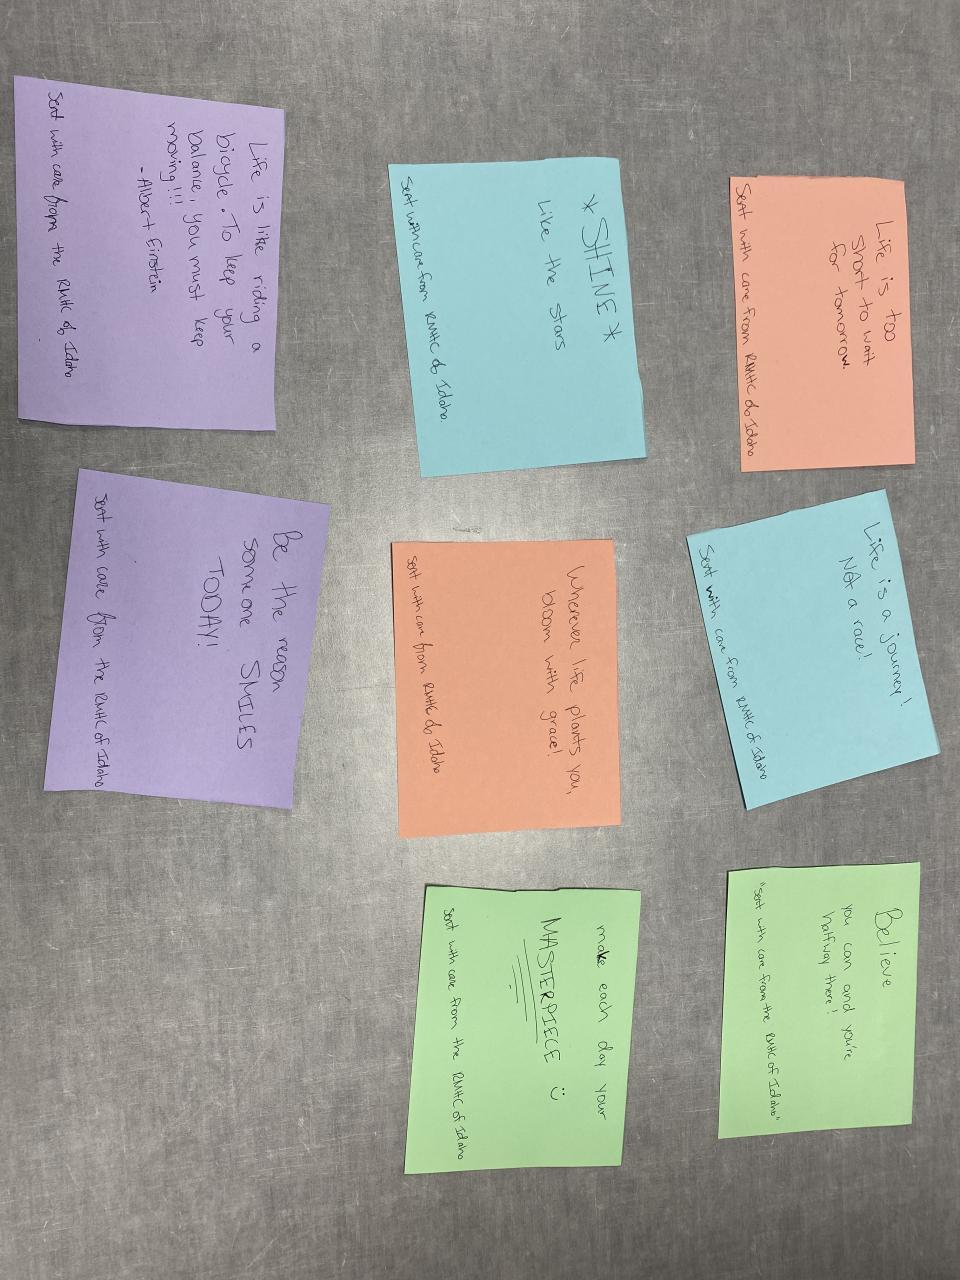 Life is too
short to wait
for tomorrow.
Sent with care from RMHC of Idaho
Life is a journey!
Not a race!
Sent with care from RMHC of Idaho
Believe
you can and you're
halfway there!
"Sent with care from the RMHC of Idaho"
* SHINE *
Like the stars
Sent with care from RMHC of Idaho.
Wherever life plants you,
bloom with grace!
Sent with care from RMHC of Idaho
make each day your
MASTERPIECE :)
Sent with care from the RMHC of Idaho
Life is like riding a
bicycle. To keep your
balance, you must keep
moving!!!
- Albert Einstein
Sent with care from the RMHC of Idaho
Be the reason
someone SMILES
TODAY!
Sent with care from the RMHC of Idaho